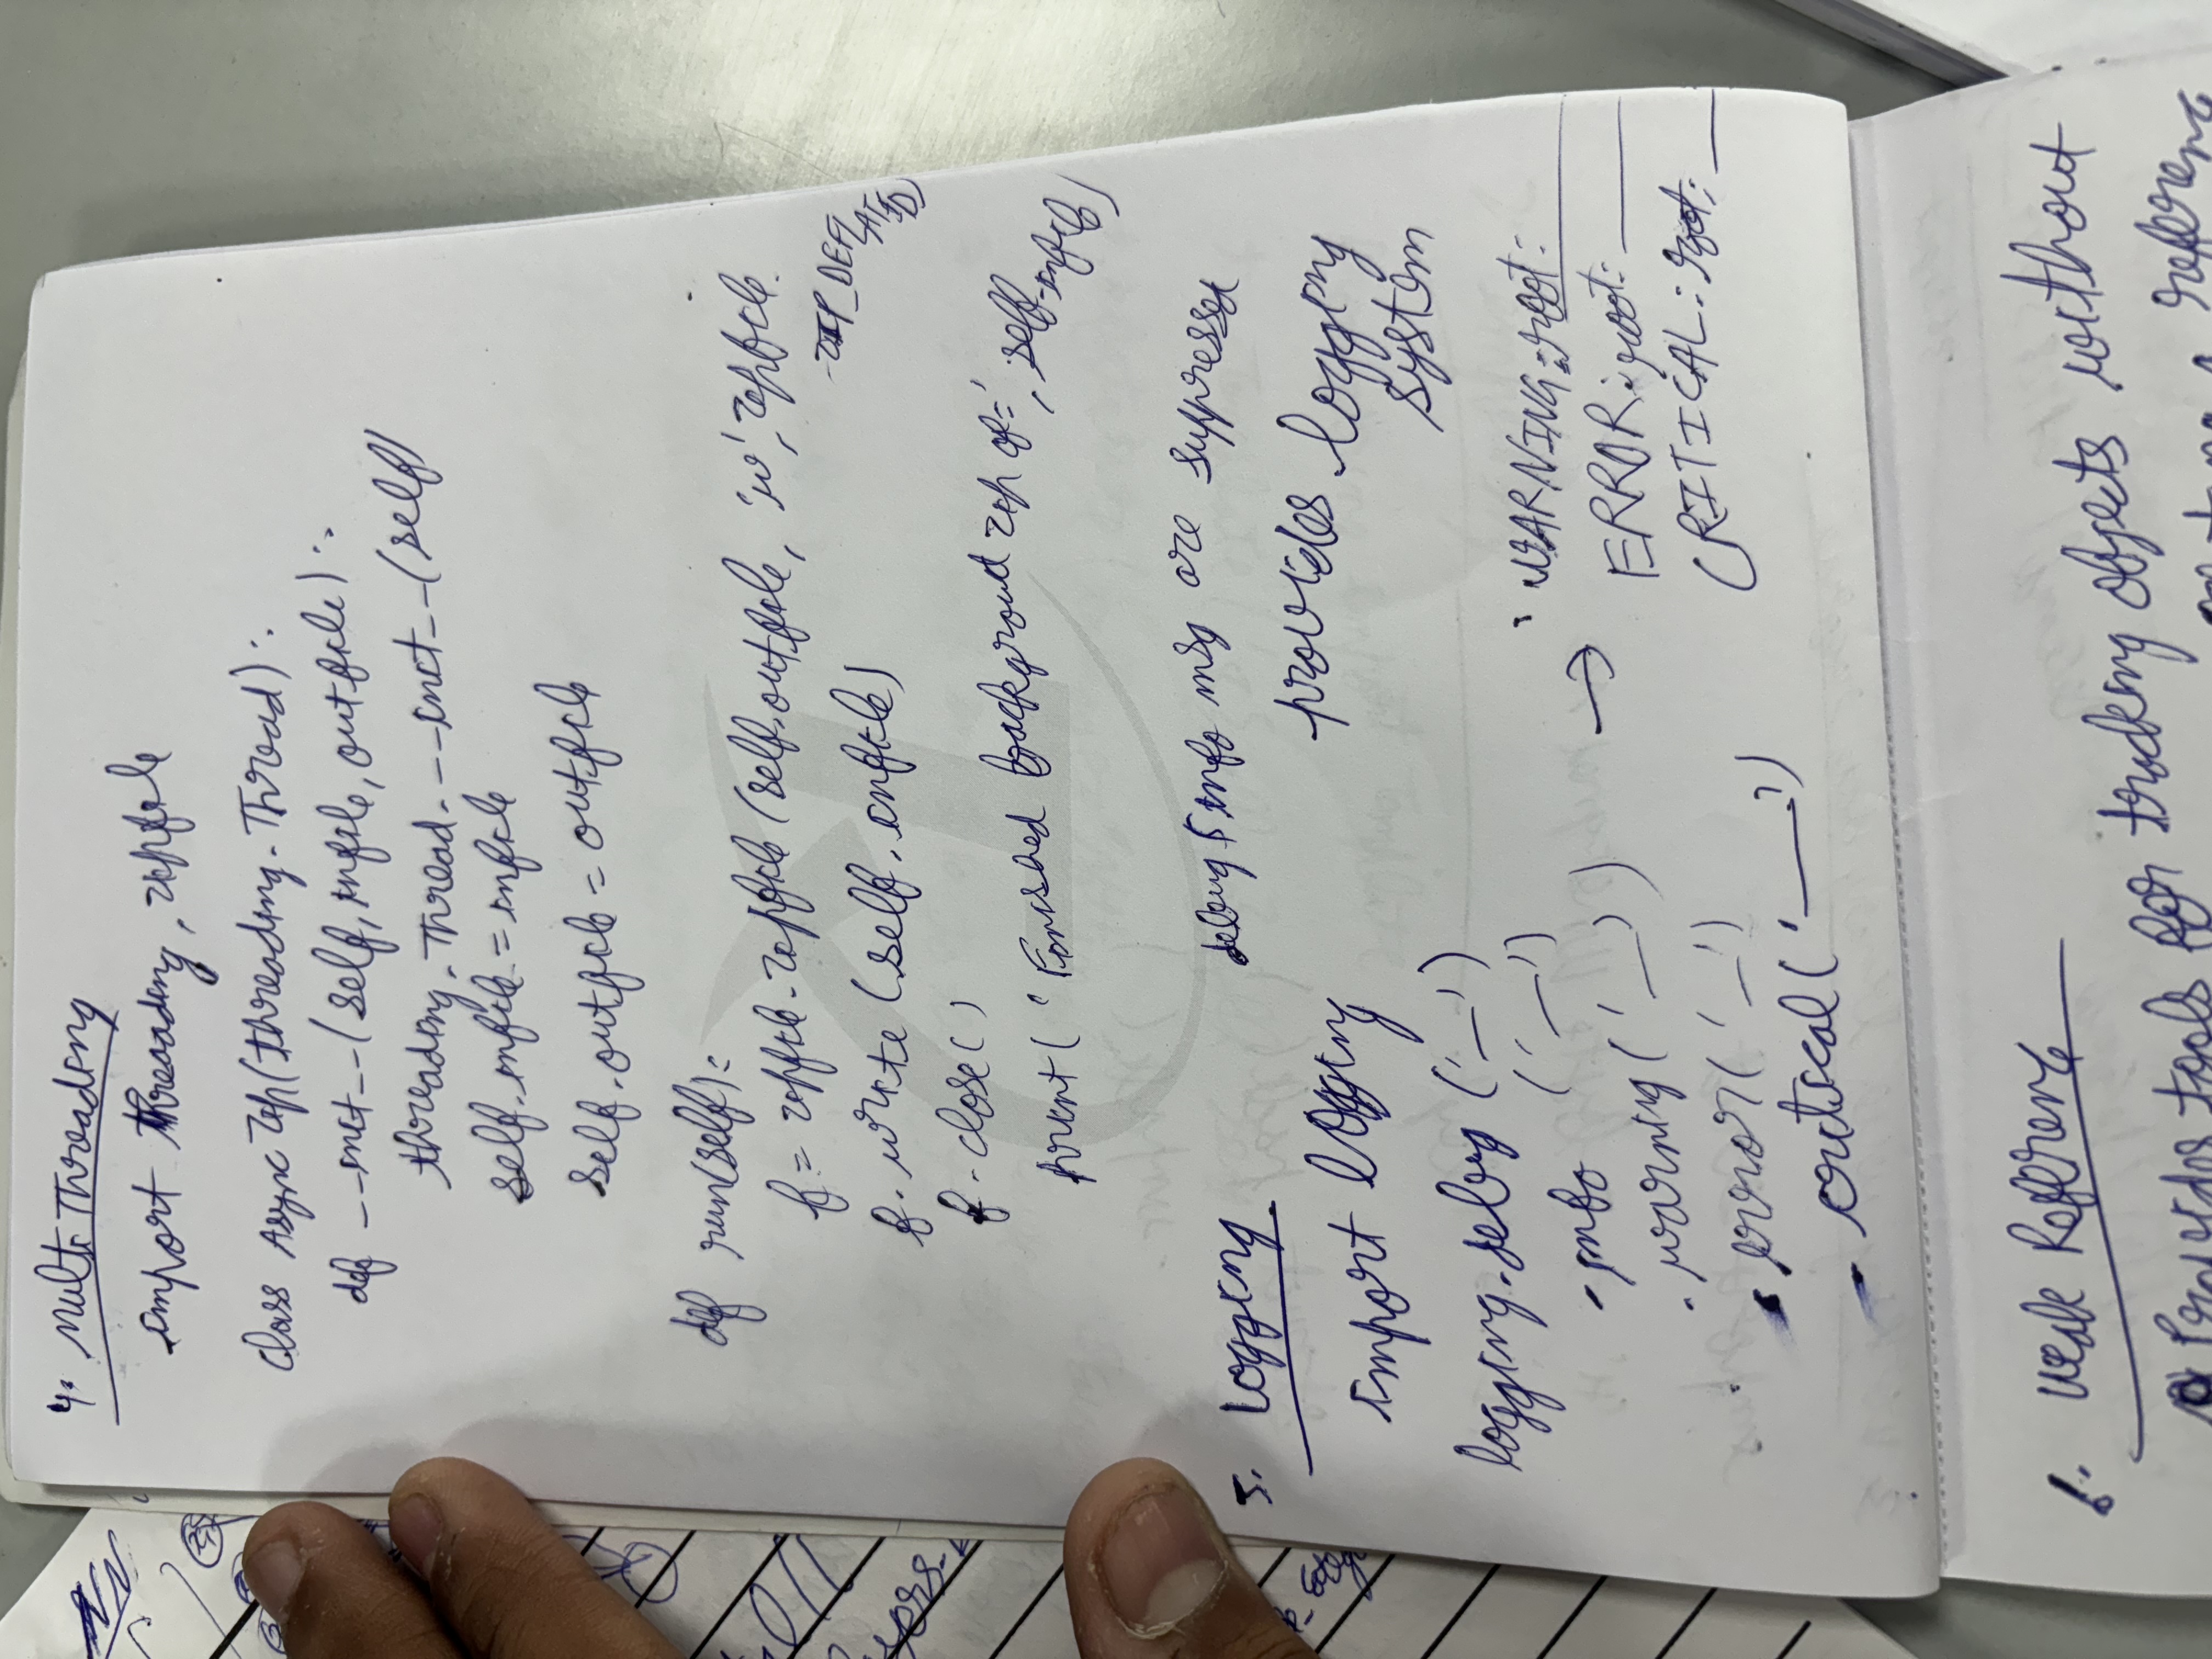 4. Multi Threading
import threading, zipfile
class AsyncZip(threading.Thread):
def __init__(self, infile, outfile):
threading.Thread.__init__(self)
self.infile = infile
self.outfile = outfile
def run(self):
f = zipfile.zipfile(self.outfile, 'w', zipfile.
ZIP_DEFLATED)
f.write(self.infile)
f.close()
print('Finished backgroud zip of:', self.infile)
debug & info msg are suppressed
5. Logging
provides logging
system
import logging
logging.debug('_')
.info('_')
.warning('_')
.error('_')
.critical('__')
→ WARNING:root:
ERROR:root:
CRITICAL:root:
6. Weak Reference
Provides tools for tracking objects without
reference